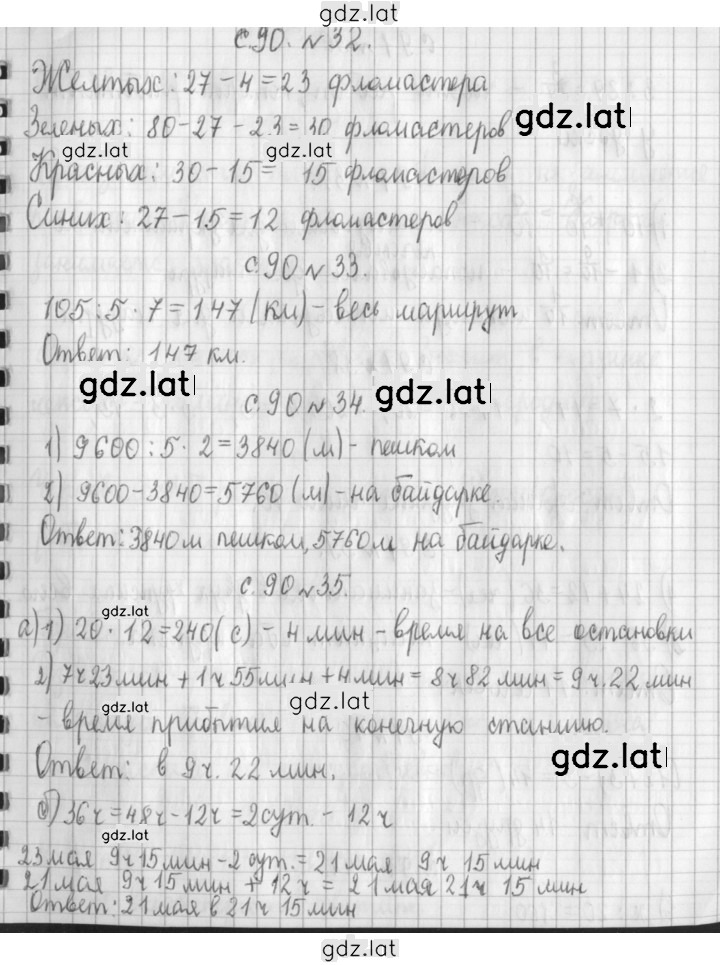 gdz.lat
с.90. №32.
Желтых: 27-4=23 фломастера
Зеленых: 80-27-23=30 фломастеров gdz.lat
gdz.lat gdz.lat
Красных: 30-15= 15 фломастеров
Синих: 27-15=12 фломастеров
с.90 №33.
105:5·7=147 (км)-весь маршрут
Ответ: 147 км.
gdz.lat gdz.lat
с.90 №34.
1) 9600:5·2=3840 (м)-пешком
2) 9600-3840=5760 (м)-на байдарке.
Ответ: 3840м пешком, 5760м на байдарке.
с.90 №35.
gdz.lat
а) 1) 20·12=240(с) - 4 мин - время на все остановки
2) 7ч23мин + 1ч 55мин +4мин = 8ч 82мин = 9ч.22мин
gdz.lat gdz.lat
- время прибытия на конечную станцию.
gdz.lat
Ответ: в 9ч. 22 мин.
б) 36ч=48ч-12ч=2сут. - 12ч
gdz.lat
23мая 9ч15мин-2сут.=21мая 9ч 15мин
21мая 9ч15мин + 12ч = 21мая 21ч 15мин
Ответ: 21мая в 21ч 15мин
gdz.lat